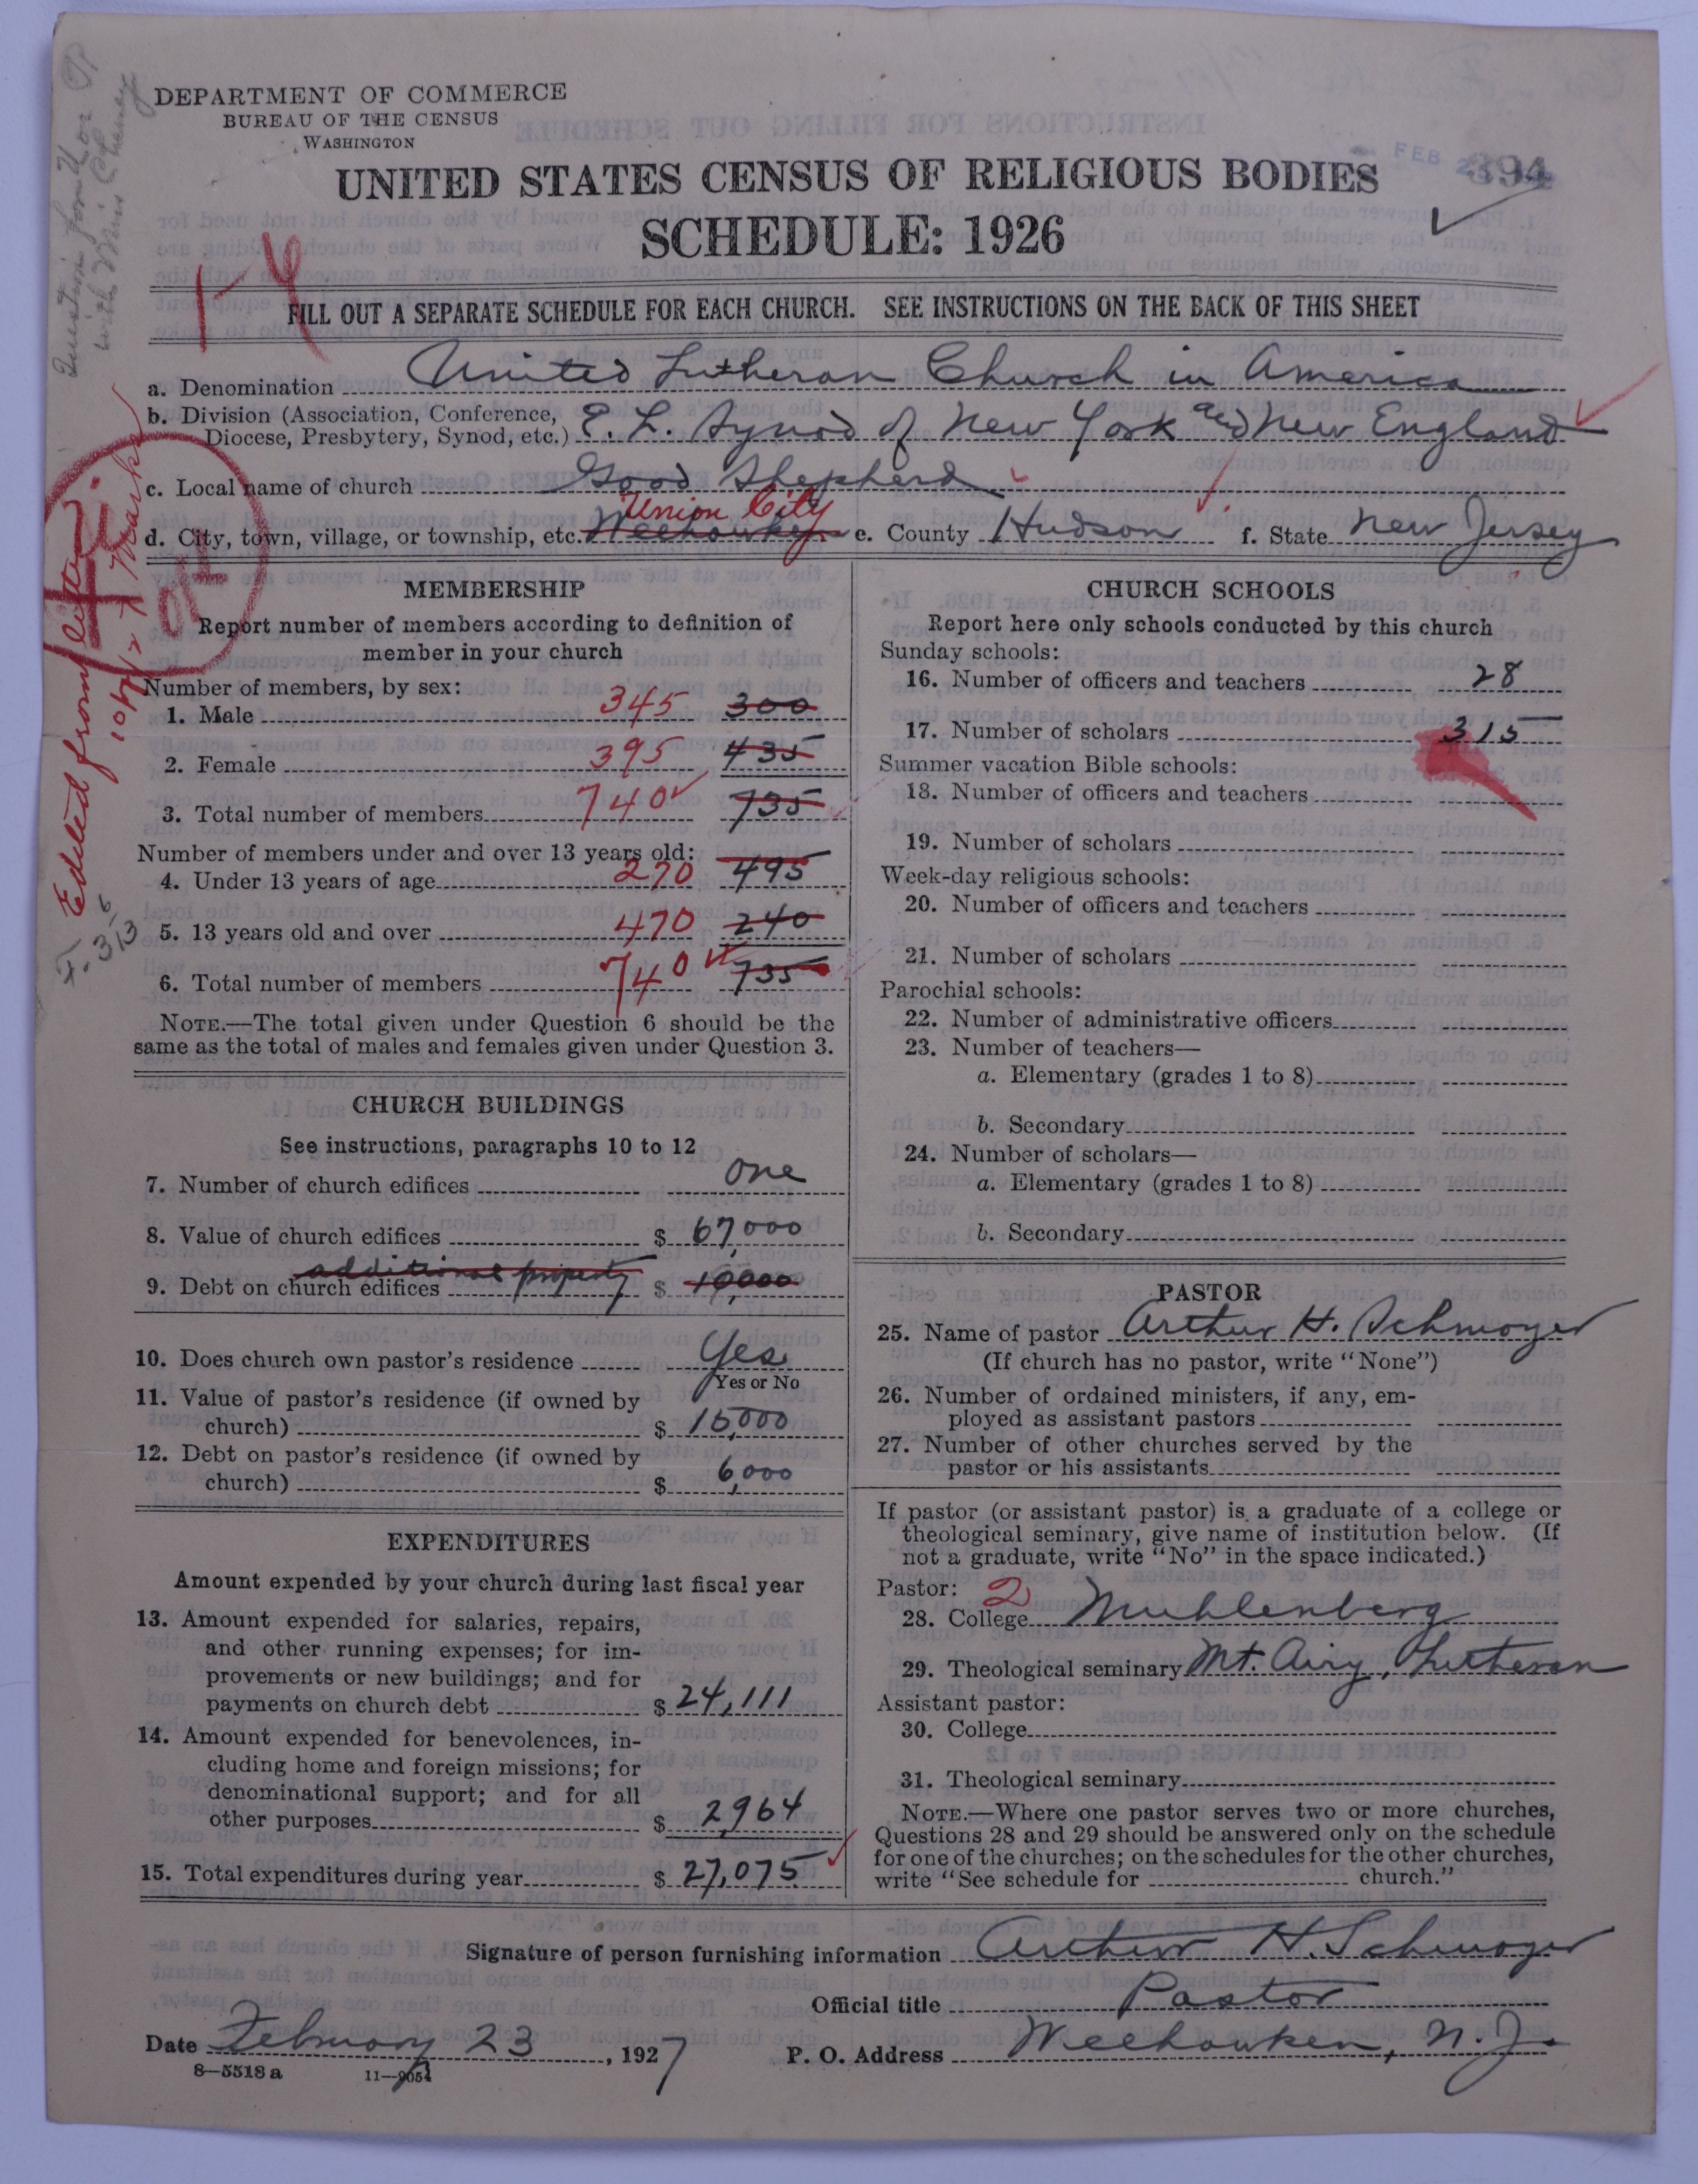 DEPARTMENT OF COMMERCE
BUREAU OF THE CENSUS
WASHINGTON
FEB 2
394
UNITED STATES CENSUS OF RELIGIOUS BODIES
SCHEDULE: 1926
FILL OUT A SEPARATE SCHEDULE FOR EACH CHURCH. SEE INSTRUCTIONS ON THE BACK OF THIS SHEET
a. Denomination United Lutheran Church in America
b. Division (Association, Conference, Diocese, Presbytery, Synod, etc.) E. L. Synod of New York and New England
c. Local name of church Good Shepherd
Union City
d. City, town, village, or township, etc. Weehawken e. County Hudson f. State New Jersey
MEMBERSHIP
Report number of members according to definition of
member in your church
Number of members, by sex:
1. Male 345 300
2. Female 395 435
3. Total number of members 740 735
Number of members under and over 13 years old:
4. Under 13 years of age 270 495
5. 13 years old and over 470 240
6. Total number of members 740 735
NOTE.—The total given under Question 6 should be the
same as the total of males and females given under Question 3.
CHURCH BUILDINGS
See instructions, paragraphs 10 to 12
7. Number of church edifices one
8. Value of church edifices $ 67,000
additional property
9. Debt on church edifices $ 10,000
10. Does church own pastor's residence Yes
Yes or No
11. Value of pastor's residence (if owned by
church) $ 15,000
12. Debt on pastor's residence (if owned by
church) $ 6,000
EXPENDITURES
Amount expended by your church during last fiscal year
13. Amount expended for salaries, repairs,
and other running expenses; for im-
provements or new buildings; and for
payments on church debt $ 24,111
14. Amount expended for benevolences, in-
cluding home and foreign missions; for
denominational support; and for all
other purposes $ 2,964
15. Total expenditures during year $ 27,075
CHURCH SCHOOLS
Report here only schools conducted by this church
Sunday schools:
16. Number of officers and teachers 28
17. Number of scholars 315
Summer vacation Bible schools:
18. Number of officers and teachers
19. Number of scholars
Week-day religious schools:
20. Number of officers and teachers
21. Number of scholars
Parochial schools:
22. Number of administrative officers
23. Number of teachers—
a. Elementary (grades 1 to 8)
b. Secondary
24. Number of scholars—
a. Elementary (grades 1 to 8)
b. Secondary
PASTOR
25. Name of pastor Arthur H. Schmoyer
(If church has no pastor, write "None")
26. Number of ordained ministers, if any, em-
ployed as assistant pastors
27. Number of other churches served by the
pastor or his assistants
If pastor (or assistant pastor) is a graduate of a college or
theological seminary, give name of institution below. (If
not a graduate, write "No" in the space indicated.)
Pastor: 2
28. College Muhlenberg
29. Theological seminary Mt. Airy, Lutheran
Assistant pastor:
30. College
31. Theological seminary
NOTE.—Where one pastor serves two or more churches,
Questions 28 and 29 should be answered only on the schedule
for one of the churches; on the schedules for the other churches,
write "See schedule for church."
Signature of person furnishing information Arthur H. Schmoyer
Official title Pastor
Date February 23, 1927 P. O. Address Weehawken, N. J.
8—5518 a 11—9054
Edited from letter